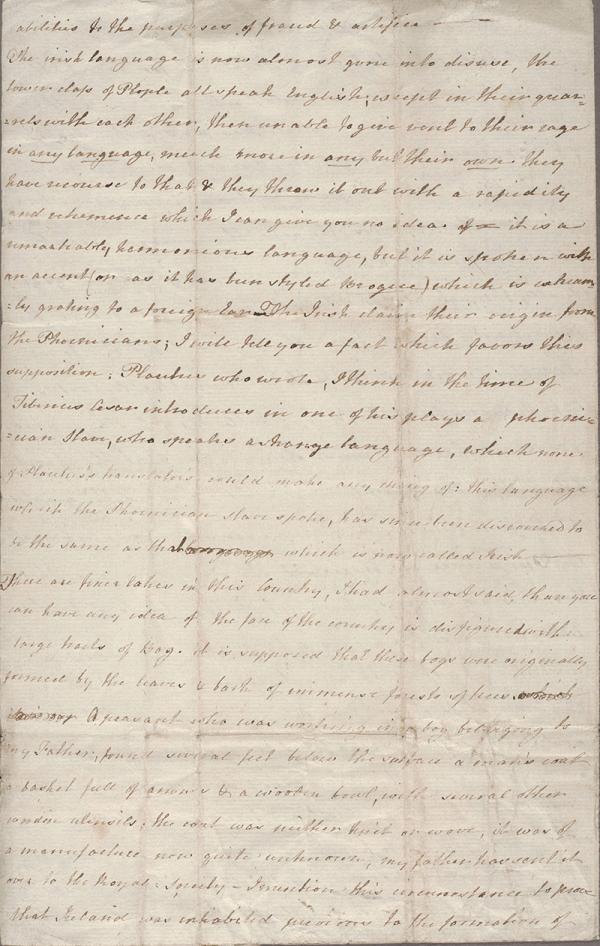 abilities to the purposes of fraud & artifice —
The irish language is now almost gone into disuse, the
lower class of People all speak English; except in their quar-
=rels with each other, then unable to give vent to their rage
in any language, much more in any but their own they
have recourse to that & they throw it out with a rapidity
and vehemence which I can give you no idea of — it is a
remarkably harmonious language, but it is spoken with
an accent (or as it has been styled brogue) which is extream-
=ly grating to a foreign Ear — The Irish claim their origin from
the Phoenicians; I will tell you a fact which favors this
supposition; Plautus who wrote, I think in the time of
Tiberius Cesar introduces in one of his plays a phoeni-
=cian Slave, who speaks a strange language, which none
of Plautus's translators could make any thing of: this language
which the Phoenician Slave spoke, has since been discovered to
be the same as that which is now called Irish —
There are finer lakes in this Country, I had almost said, than you
can have any idea of the face of the country is disfigured with
large tracts of bog. it is supposed that these bogs were originally
formed by the leaves & bark of immense forests of trees which
A peasant who was working in a bog belonging to
my Father, found several feet below the surface a man's coat
a basket full of & a wooten bowl, with several other
wooden utensils; the coat was neither knit or wove, it was of
a manufacture now quite unknown, my father has sent it
over to the Royal-Society — I mention this circumstance to prove
that Ireland was inhabited previous to the formation of